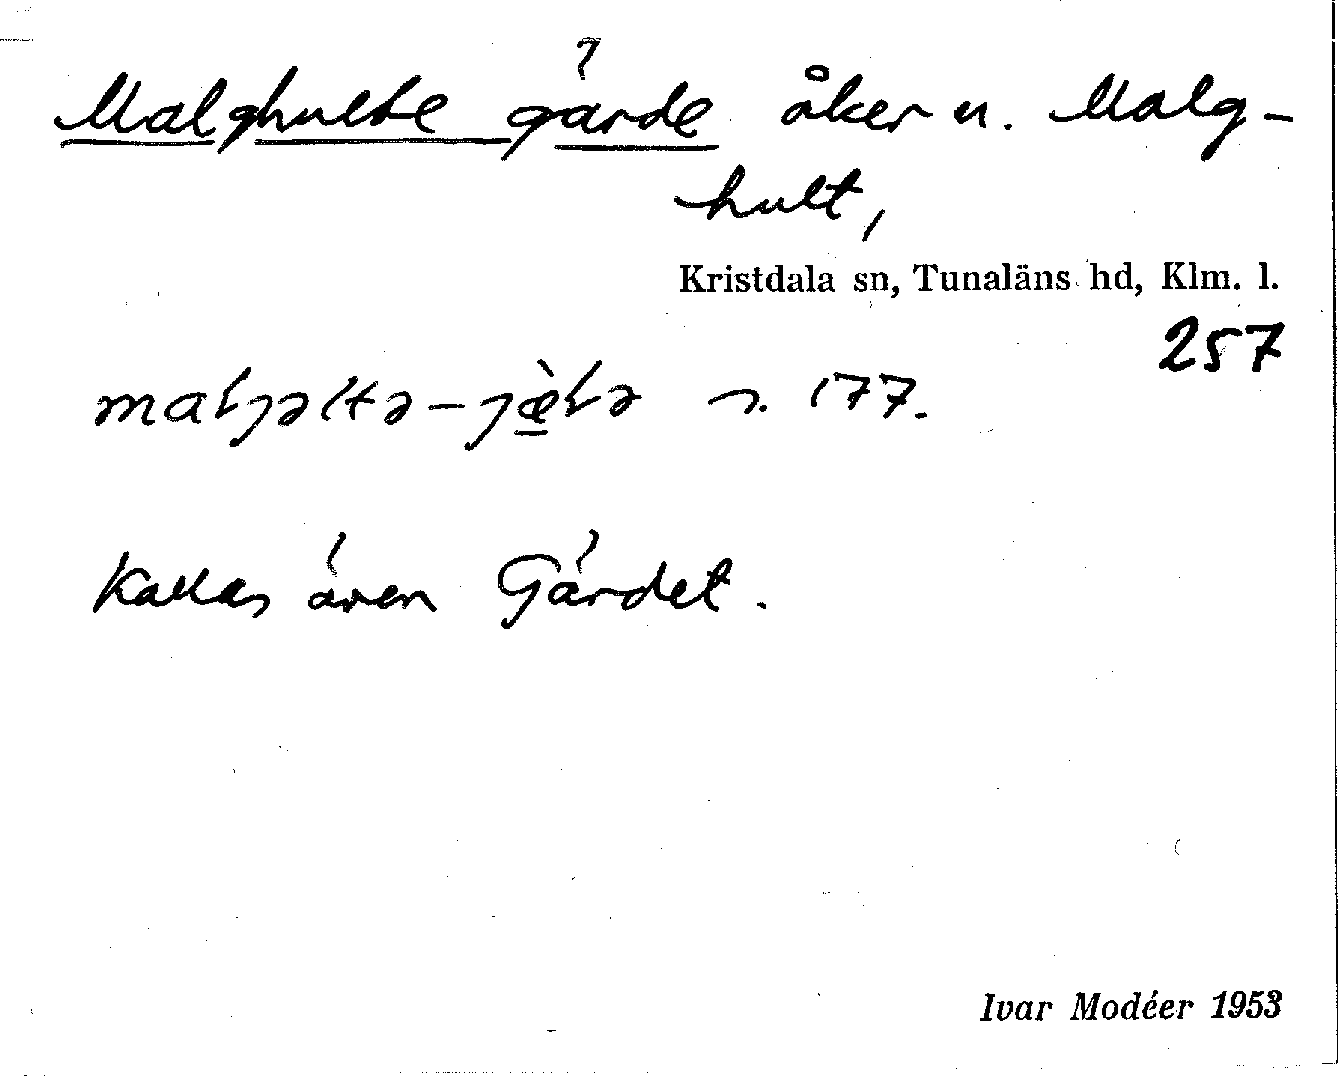 Malghulte gärde åker u. Malg-
hult,
Kristdala sn, Tunaläns hd, Klm. l.
257
maɫɟəltə-ɟæ̀ɫə s. 177.
Kallas även Gärdet.
Ivar Modéer 1953